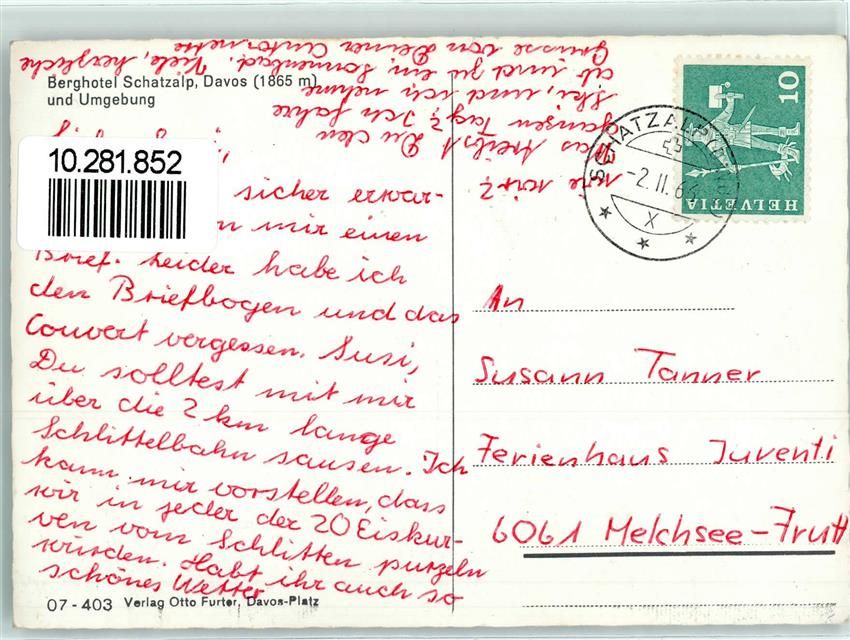 Berghotel Schatzalp, Davos (1865 m)
und Umgebung
10.281.852
sicher erwar-
mir einen
Brief. Leider habe ich
den Briefbogen und das
Couvert vergessen. Susi,
Du solltest mit mir
über die 2 km lange
Schlittelbahn sausen. Ich
kann mir vorstellen, dass
wir in jeder der 20 Eiskur-
ven vom Schlitten purzeln
würden. Habt ihr auch so
schönes Wetter
wie wir?
Was treibst Du den
ganzen Tag? Ich fahre
Ski, und ich nehme
ab und zu ein Sonnenbad. Viele, herzliche
Grüsse von Deiner
07-403 Verlag Otto Furter, Davos-Platz
HELVETIA
10
SCHATZALP
-2.II.6
X
An
Susann Tanner
Ferienhaus Juventi
6061 Melchsee-Frutt